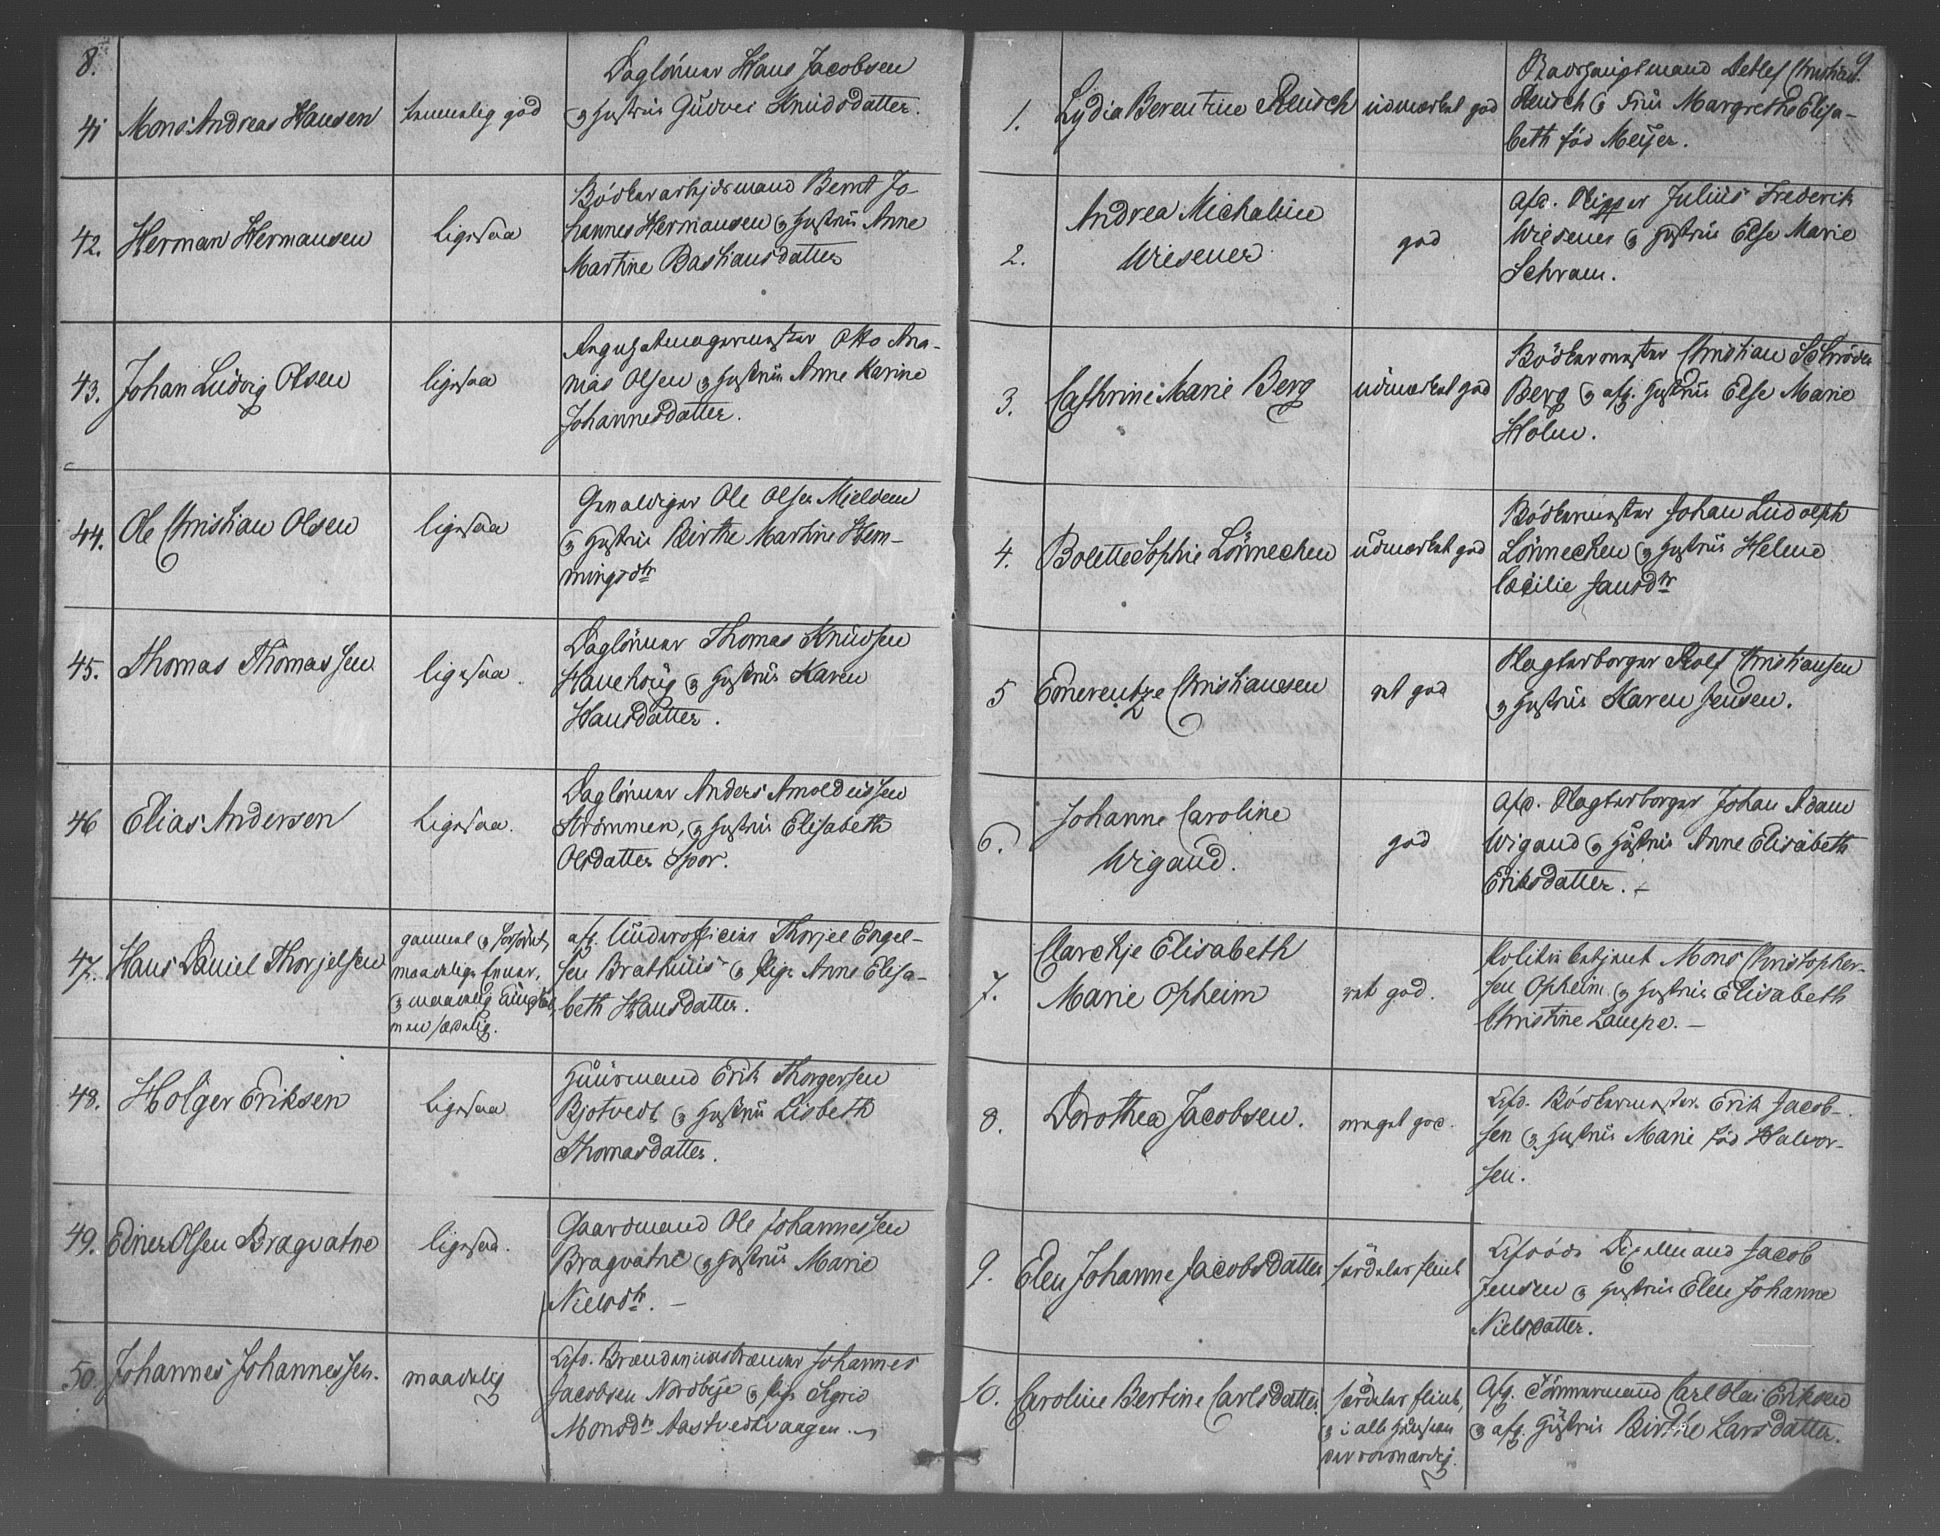 8.
41
Mons Andreas Hansen
temmelig god
Daglönner Hans Jacobsen
og Hustrüe Gudvei Knüdsdatter.
42.
Herman Hermansen
ligesaa
Bödkerarbejdsmand Bernt Jo-
hannes Hermansen og Hustrüe Anne
Martine Bastiansdatter
43.
Johan Lüdvig Olsen
ligesaa
Otto Ana-
nias Olsen og Hustrüe Anne Karine
Johannesdatter.
44.
Ole Christian Olsen
ligesaa
Gevaldiger Ole Olsen Mjeldem
og Hustrüe Birthe Martine Hem-
mingsdtr
45.
Thomas Thomassen
ligesaa.
Daglönner Thomas Knüdsen
Hauehoug og Hustrüe Karen
Hansdatter.
46
Elias Andersen
ligesaa.
Daglönner Anders Arnoldussen
Strömmen, og Hustrüe Elisabeth
Olsdatter Spor.
47.
Hans Daniel Thorjelsen
gammel og
maadelige Evner,
og maadelig
men sædelig.
afg. Ünderofficier Thorjel Engel-
sen Brathüüs og Pige Anne Elisa-
beth Hansdatter.
48.
Holger Eriksen
ligesaa
Hüüsmand Erik Thorgersen
Bjotvedt og Hustrüe Lisbeth
Thomasdatter.
49.
Edner Olsen Bragvatne
ligesaa.
Gaardmand Ole Johannessen
Bragvatne og Hustrüe Marie
Nielsdtr. —
50.
Johannes Johannessen.
maadelig
Afd. Brændeviinsbrænder Johannes
Jacobsen Nordbye og Pige Sigrid
Monsdtr Aastvedtvaagen.
9
1.
Lydia Berentine Reusch
üdmærket god
Raadhauptmand Detlef Christian
Reusch og Früe Margrethe Elisa-
beth föd Meÿer.
2.
Andrea Michaline
Wiesener
god
Afd. Rigger Julius Frederik
Wiesener og Hustrüe Else Marie
Schram.
3.
Cathrine Marie Berg
üdmærket god
Bödkermester Christian Schröder
Berg og afg. Hustrüe Else Marie
Holm.
4.
Bolette Sophie Lönnechen
üdmærket god
Bödkermester Johan Lüdolph
Lönnechen og Hustrüe Helene
Cæcilie Jansdtr
5
Emerentze Christiansen
ret god
Flagterborger Rolf Christiansen
og Hustrüe Karen Jensen.
6.
Johanne Caroline
Wigand.
god
Afd. Flagterborger Johan Adam
Wigand og Hüstrüe Anne Elisabeth
Eriksdatter. —
7.
Clarckje Elisabeth
Marie Opheim
ret god.
Politiebetjent Mons Christopher-
sen Opheim og Hustrüe Elisabeth
Christine Lampe. —
8.
Dorothea Jacobsen.
meget god.
Afd. Bödkermester Erik Jacob-
sen og Hustrüe Marie föd Halvor-
sen.
9.
Elen Johanne Jacobsdatter
særdeles flink
Afdöde Jacob
Jensen og Hustrüe Elen Johanne
Nielsdatter.
10.
Caroline Bertine Carlsdatter
særdeles flink,
og i alle Henseender
roesværdig.
Afg. Tömmermand Carl Olai Eriksen
og afg. Hüstrüe Birthe Larsdatter.